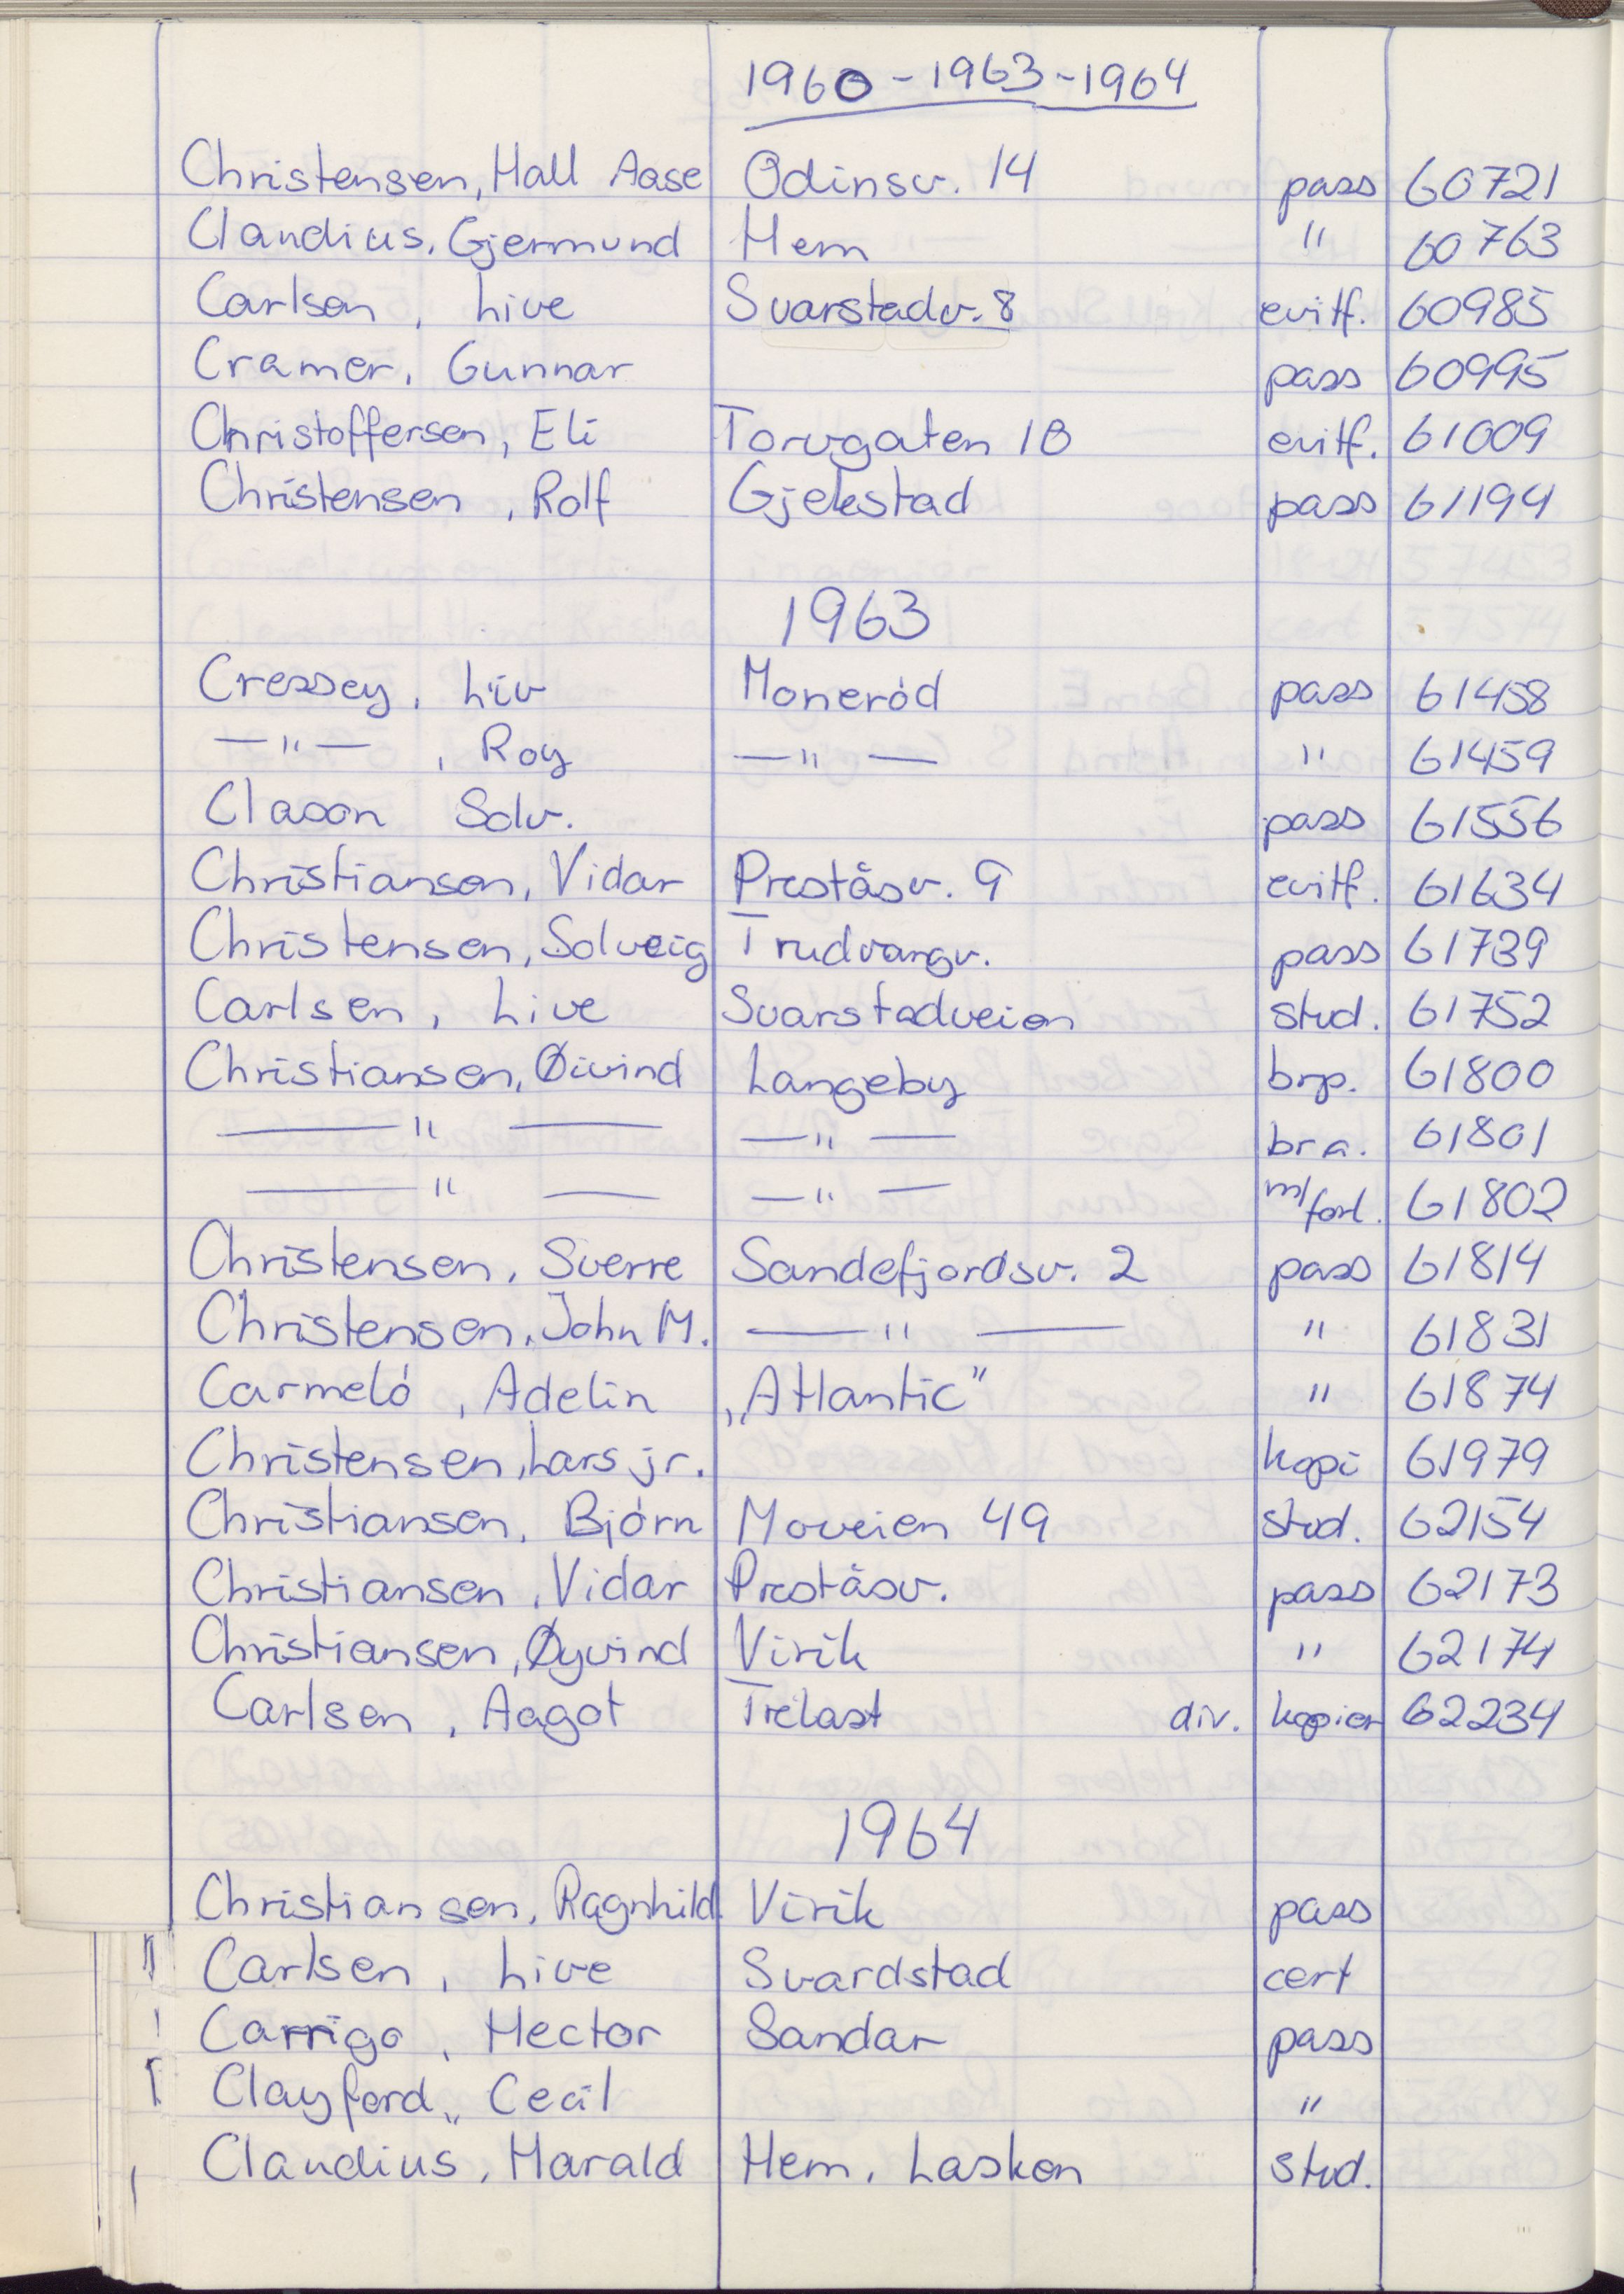 1960 - 1963 - 1964
Christensen, Hall Aase Odinsv. 14 pass 60721
Claudius, Gjermund Hem " 60763
Carlsen, Live Svarstadv. 8 evitf. 60985
Cramer, Gunnar pass 60995
Christoffersen, Eli Torvgaten 10 evitf. 61009
Christensen, Rolf Gjekstad pass 61194
1963
Cressey, Liv Moneród pass 61458
— " — , Roy — " — " 61459
Clason Solv. pass 61556
Christiansen, Vidar Preståsv. 9 evitf. 61634
Christensen, Solveig Trudvangv. pass 61739
Carlsen, Live Svarstadveien stud. 61752
Christiansen, Øivind Langeby brp. 61800
— " — — " — bra. 61801
— " — — " — m/forl. 61802
Christensen, Sverre Sandefjordsv. 2 pass 61814
Christensen, John M. — " — " 61831
Carmeló, Adelin „Atlantic" " 61874
Christensen, Lars jr. kopi 61979
Christiansen, Bjórn Moveien 49 stud. 62154
Christiansen, Vidar Preståsv. pass 62173
Christiansen, Øyvind Virik " 62174
Carlsen, Aagot Trelast div. kopier 62234
1964
Christiansen, Ragnhild Virik pass
Carlsen, Live Svardstad cert
Carrigo, Hector Sandar pass
Clayford,, Cecil "
Claudius, Harald Hem, Laskon stud.